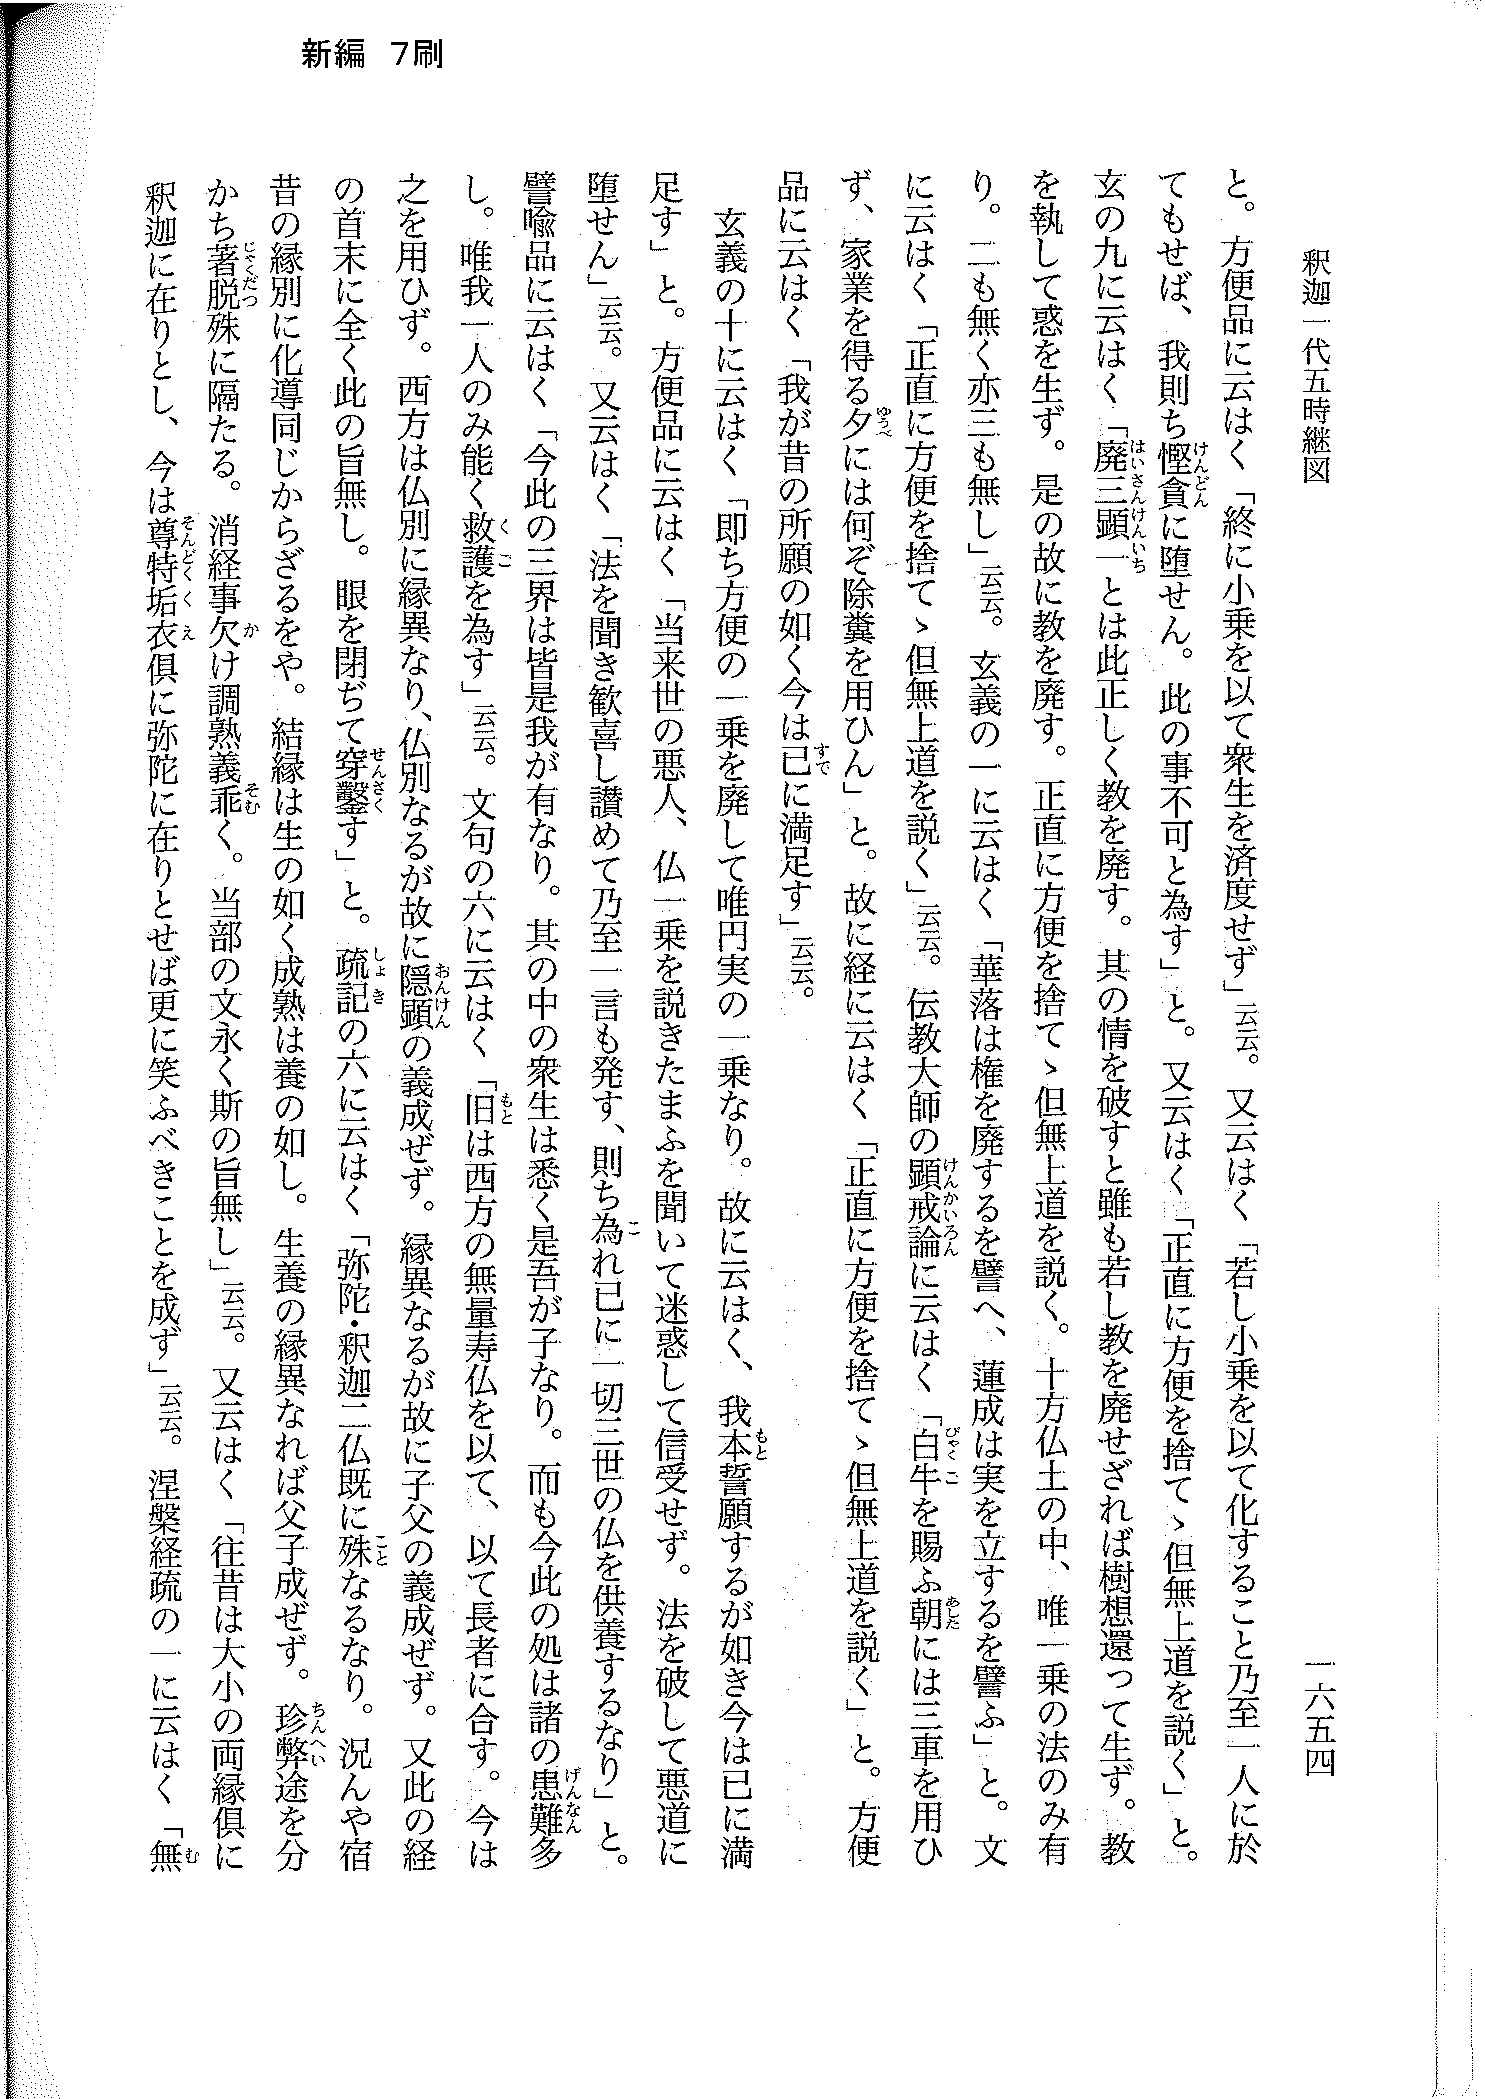 新編 7刷
釈迦一代五時継図
一六五四
と。方便品に云はく「終に小乗を以て衆生を済度せず」云云。又云はく「若し小乗を以て化すること乃至一人に於
てもせば、我則ち慳貪に堕せん。此の事不可と為す」と。又云はく「正直に方便を捨てゝ但無上道を説く」と。
玄の九に云はく「廃三顕一とは此正しく教を廃す。其の情を破すと雖も若し教を廃せざれば樹想還って生ず。教
を執して惑を生ず。是の故に教を廃す。正直に方便を捨てゝ但無上道を説く。十方仏土の中、唯一乗の法のみ有
り。二も無く亦三も無し」云云。玄義の一に云はく「華落は権を廃するを譬へ、蓮成は実を立するを譬ふ」と。文
に云はく「正直に方便を捨てゝ但無上道を説く」云云。伝教大師の顕戒論に云はく「白牛を賜ふ朝には三車を用ひ
ず、家業を得る夕には何ぞ除糞を用ひん」と。故に経に云はく「正直に方便を捨てゝ但無上道を説く」と。方便
品に云はく「我が昔の所願の如く今は已に満足す」云云。
玄義の十に云はく「即ち方便の一乗を廃して唯円実の一乗なり。故に云はく、我本誓願するが如き今は已に満
足す」と。方便品に云はく「当来世の悪人、仏一乗を説きたまふを聞いて迷惑して信受せず。法を破して悪道に
堕せん」云云。又云はく「法を聞き歓喜し讃めて乃至一言も発す、則ち為れ已に一切三世の仏を供養するなり」と。
譬喩品に云はく「今此の三界は皆是我が有なり。其の中の衆生は悉く是吾が子なり。而も今此の処は諸の患難多
し。唯我一人のみ能く救護を為す」云云。文句の六に云はく「旧は西方の無量寿仏を以て、以て長者に合す。今は
之を用ひず。西方は仏別に縁異なり、仏別なるが故に隠顕の義成ぜず。縁異なるが故に子父の義成ぜず。又此の経
の首末に全く此の旨無し。眼を閉ぢて穿鑿す」と。疏記の六に云はく「弥陀・釈迦二仏既に殊なるなり。況んや宿
昔の縁別に化導同じからざるをや。結縁は生の如く成熟は養の如し。生養の縁異なれば父子成ぜず。珍弊途を分
かち著脱殊に隔たる。消経事欠け調熟義乖く。当部の文永く斯の旨無し」云云。又云はく「往昔は大小の両縁倶に
釈迦に在りとし、今は尊特垢衣倶に弥陀に在りとせば更に笑ふべきことを成ず」云云。涅槃経疏の一に云はく「無